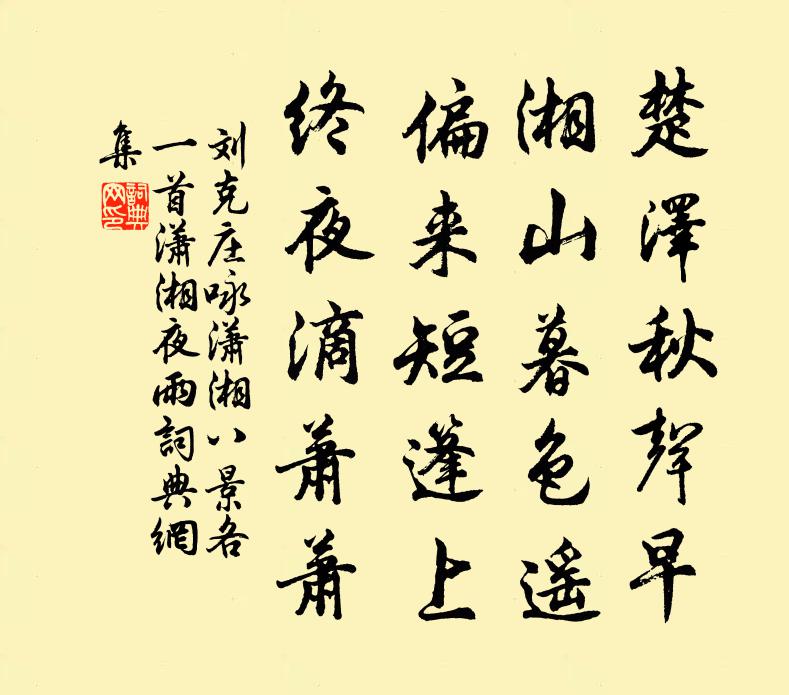 楚澤秋聲早
湘山暮色遥
偏来短篷上
终夜滴萧萧
刘克庄咏瀟湘八景各
一首瀟湘夜雨詞典網
集
詞典
网印